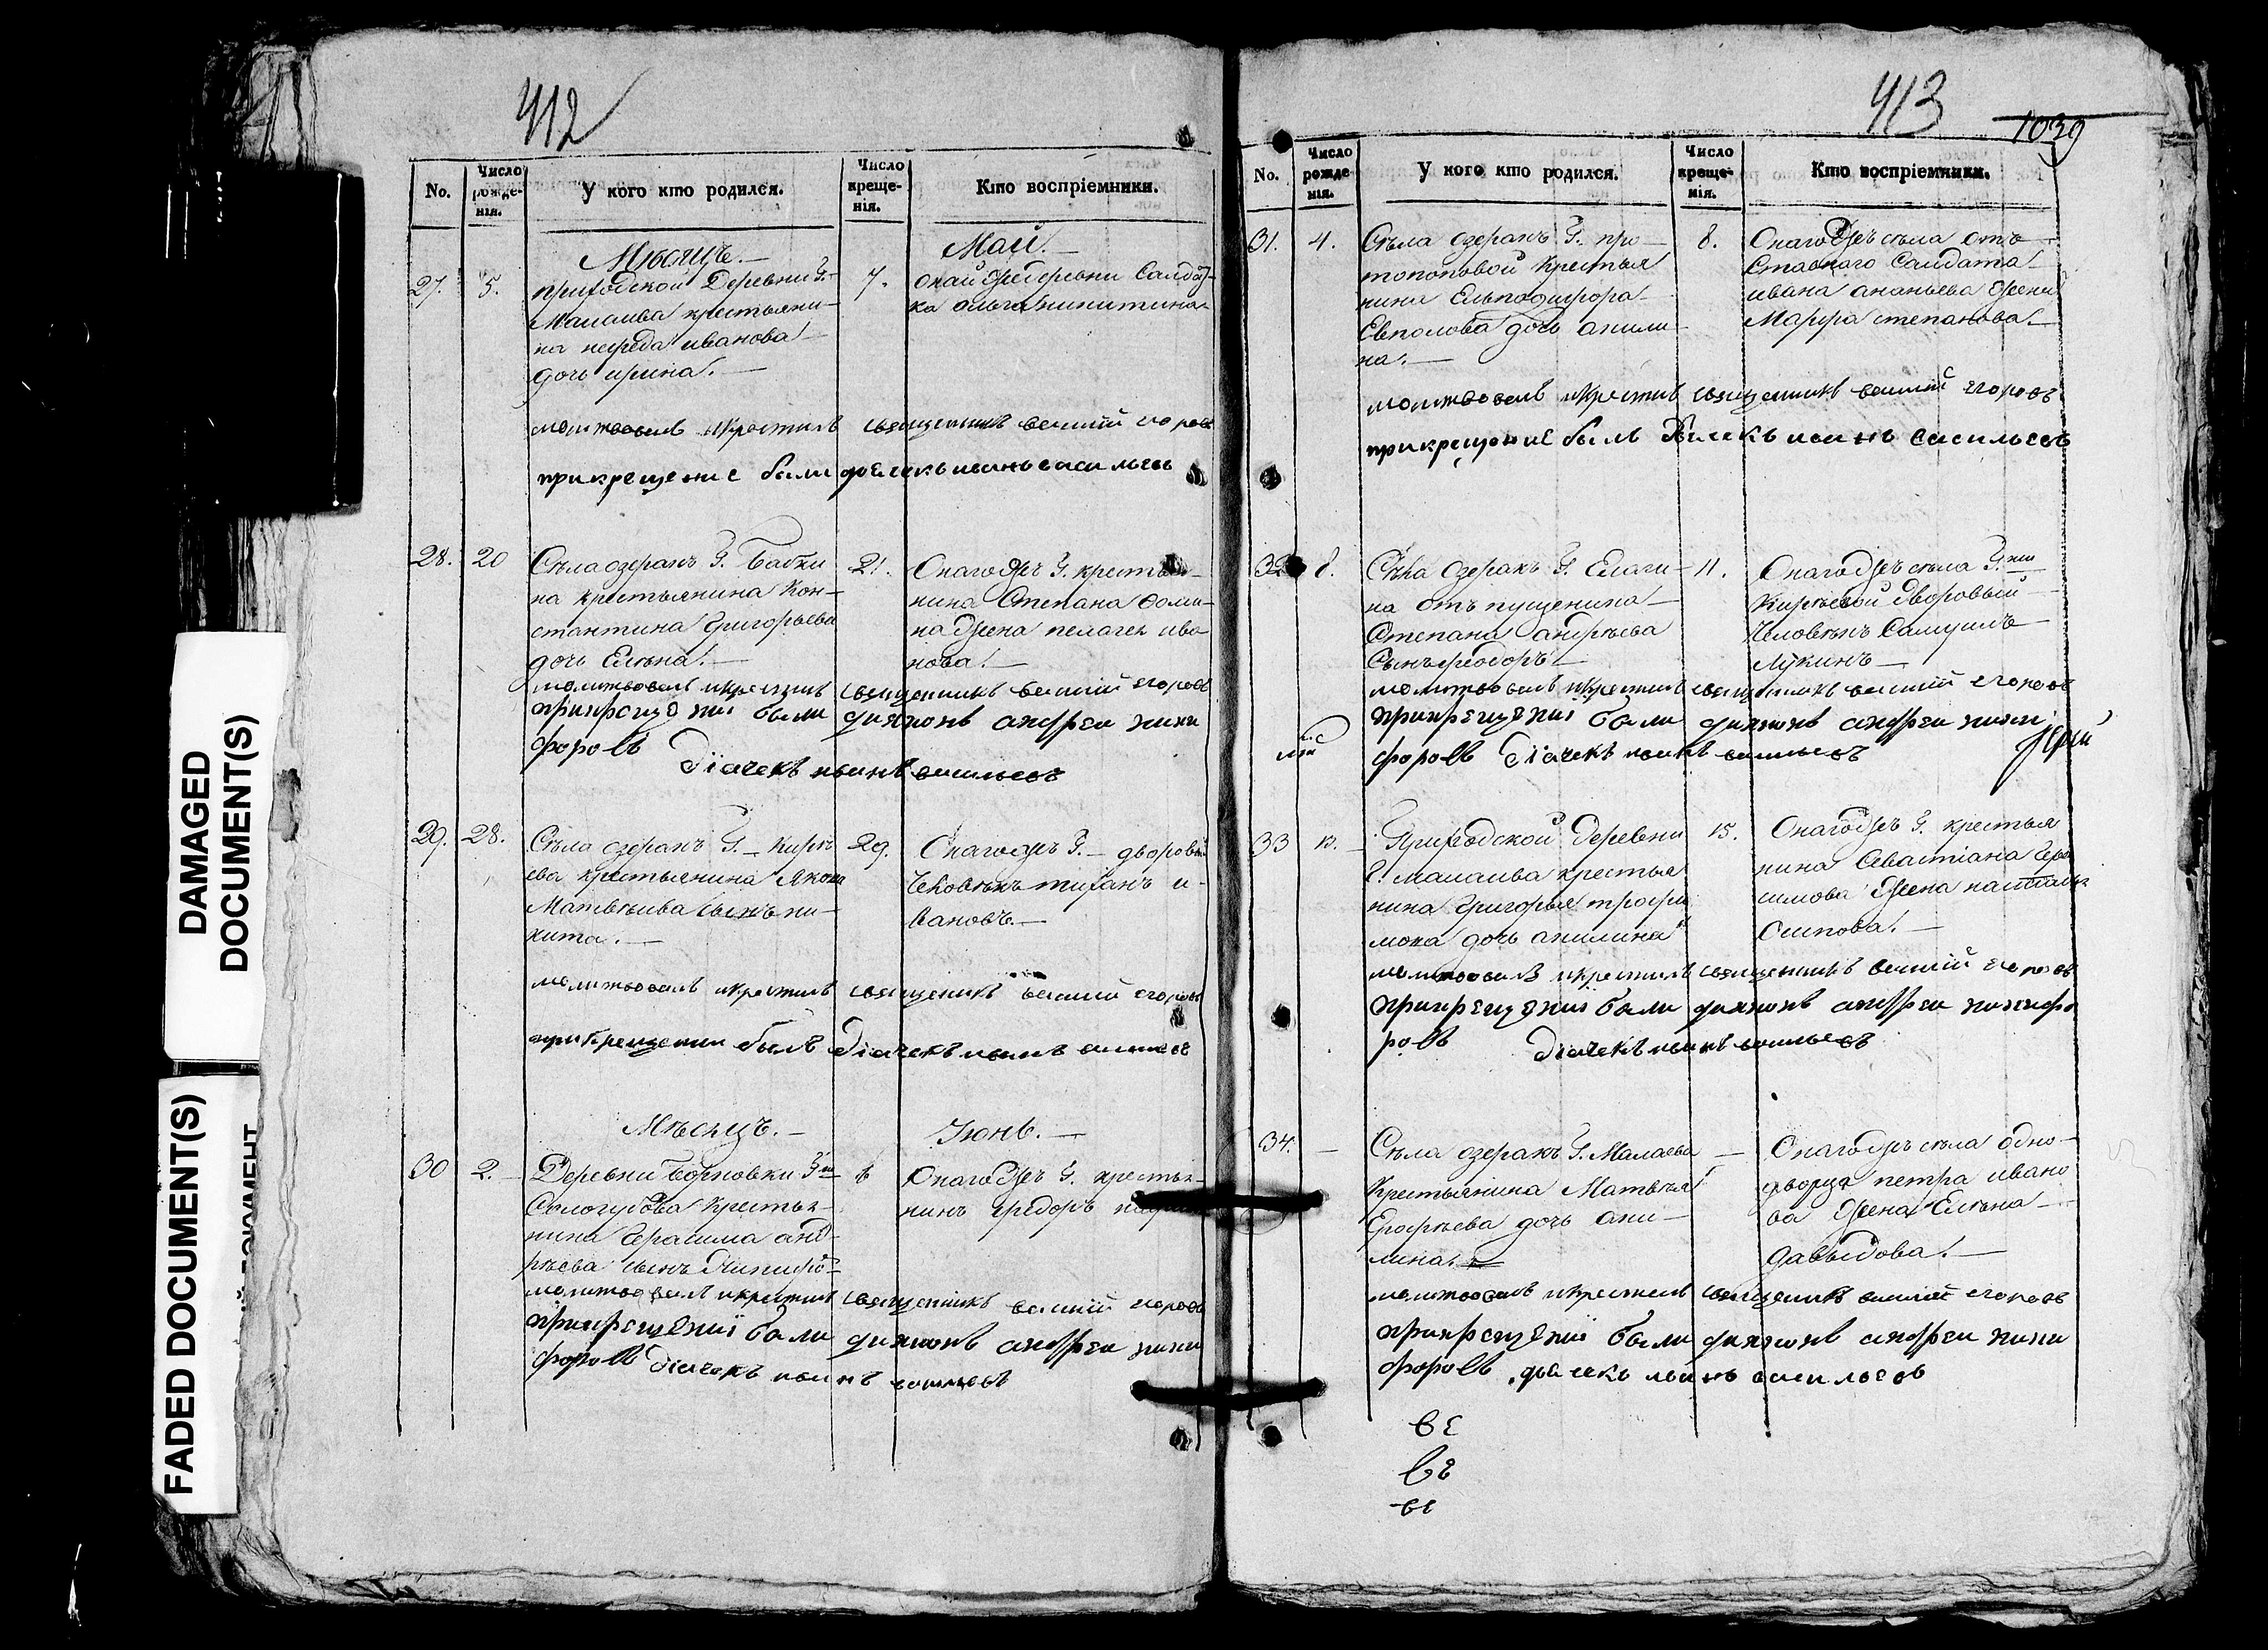 412
No.
Число рожде-нія.
У кого кто родился.
Число креще-нія.
Кто воспріемники.
Мѣсяцъ.
Май.
27.
5.
приходской Деревни Г.
Малаива крестьяни-
на нефеда иванова
дочь ирина.
7.
онай же деревни Салдат-
ка ольга никитина
молитвовалъ икрестилъ священникъ василiй егоровъ
прикрещение были дьячекъ иванъ васильевъ
28.
20
Села озерокъ Г. Бабки
на крестьянина Кон-
стантина Григорьева
дочь Елѣна.
21.
Онаго же Г. крестья-
нина Степана фоми-
на жена пелагея ива
нова.
молитвовалъ икрестилъ священникъ василiй егоровъ
прикрещении были диаконъ андреи ники
форовъ дiячекъ иванъ васильевъ
29.
28.
Села озерокъ Г. Кирѣ
ева крестьянина Якова
Матвѣива сынъ ни-
кита.
29.
Онагоже Г. дворовый
Человѣкъ тиханъ и-
вановъ.
молитвовалъ икрестилъ священникъ василiй егоровъ
прикрещении былъ дiячекъ иванъ васильевъ
Мѣсяцъ.
Июнь.
30
2.
Деревни Борковки Г-на
Сологубова крестья-
нина Герасима анд-
рѣева сынъ Никифо-
Онагоже Г. крестья-
нинъ федоръ
молитвовалъ икрестилъ священникъ василiй егоровъ
прикрещенiи были диаконъ андреи ники
форовъ дiячекъ иванъ васильевъ
413
1039
No.
Число рожде-нія.
У кого кто родился.
Число креще-нія.
Кто воспріемники.
31.
4.
Села озерокъ Г. про-
топоповой крестья
нина Ельподифора
Евполова дочь акили-
на.
8.
Онагоже села отъ-
ставнаго Салдата
ивана ананьева жена
Марфа степанова.
молитвовалъ икрестилъ священникъ василiй егоровъ
прикрещение былъ дьячекъ иванъ васильевъ
32
8.
Села Озерокъ Г. Елаги-
на отъ пущенина
Степана андрѣева
Сынъ феодоръ
11.
Онагоже села Г-жи
Кирѣевой дворовый
Человѣкъ Самуилъ
Лукинъ
молитвовалъ икрестилъ священникъ василiй егоровъ
прикрещенiи были диаконъ андреи ники
форовъ дiячекъ иванъ васильевъ
33
12.
Приходской деревни
Г. малаива крестья
нина Григорья трофи
мова дочь акилина
15.
Онагоже Г. крестья
нина Севастiана Гера
симова жена наталья
Осипова.
молитвовалъ икрестилъ священникъ василiй егоровъ
прикрещенiи были диаконъ андреи никифо
ровъ дiячекъ иванъ васильевъ
34.
Села озерокъ Г. Малаева
Крестьянина Матвѣя
Ерофѣева дочь аки-
лина.
Онагоже села одно-
дворца петра ивано
ва жена Елѣна
давыдова.
молитвовалъ икрестилъ священникъ василiй егоровъ
прикрещенiи были диаконъ андреи ники
форовъ дьячекъ иванъ васильевъ
DAMAGED
DOCUMENT(S)
FADED DOCUMENT(S)